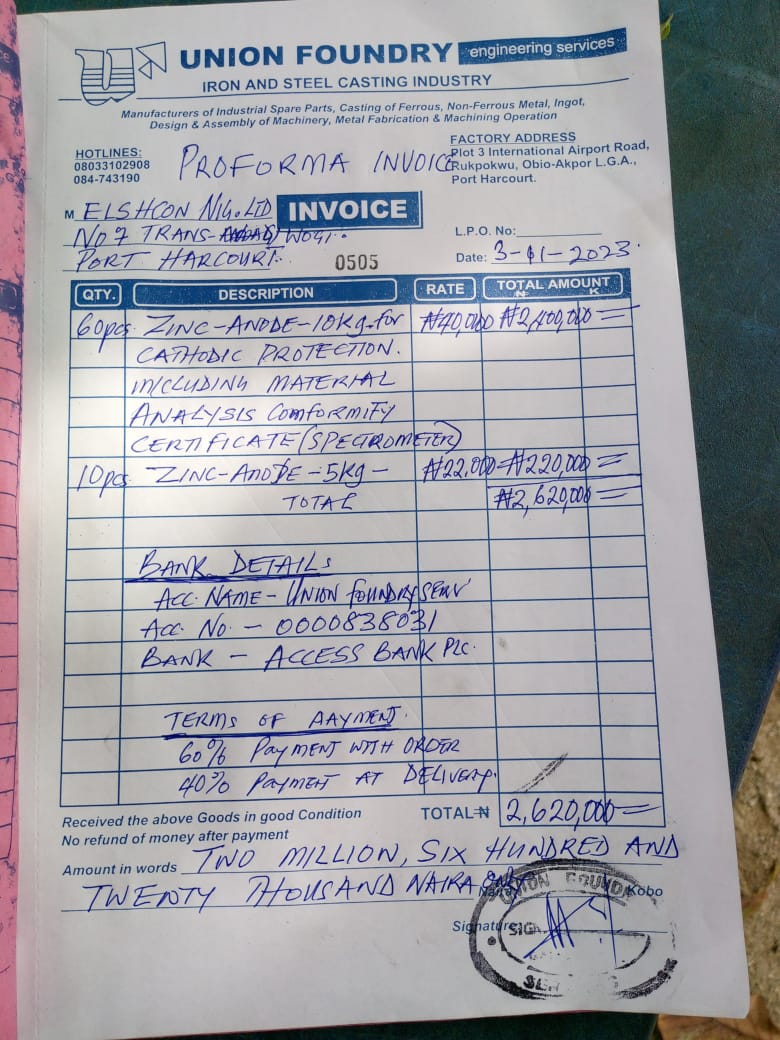 UNION FOUNDRY engineering services
IRON AND STEEL CASTING INDUSTRY
Manufacturers of Industrial Spare Parts, Casting of Ferrous, Non-Ferrous Metal, Ingot,
Design & Assembly of Machinery, Metal Fabrication & Machining Operation
HOTLINES:
08033102908
084-743190
PROFORMA INVOICE
FACTORY ADDRESS
Plot 3 International Airport Road,
Rukpokwu, Obio-Akpor L.G.A.,
Port Harcourt.
M ELSHCON NIG. LTD
INVOICE
No 7 TRANS- WOGI.
L.P.O. No:
PORT HARCOURT.
0505
Date: 3-11-2023.
QTY. DESCRIPTION RATE TOTAL AMOUNT
₦ K
60pcs ZINC-ANODE-10kg-for ₦40,000 ₦2,400,000=
CATHODIC PROTECTION.
INCLUDING MATERIAL
ANALYSIS COMFORMIFY
CERTIFICATE (SPECTROMETER)
10pcs ZINC-ANODE-5kg- ₦22,000 ₦220,000=
TOTAL ₦2,620,000=
BANK DETAILS
ACC. NAME- UNION FOUNDRY SERV
ACC. No. - 0000838031
BANK - ACCESS BANK PLC.
TERMS OF AAYMENT.
60% PAYMENT WITH ORDER
40% PAYMENT AT DELIVERY.
Received the above Goods in good Condition
No refund of money after payment
TOTAL ₦ 2,620,000=
Amount in words TWO MILLION, SIX HUNDRED AND
TWENTY THOUSAND NAIRA ONLY Kobo
Signature:
UNION FOUND
SIG